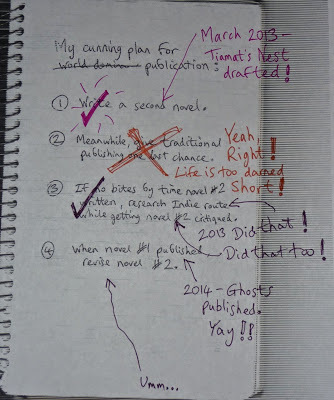 March 2013 -
Tiamat's Nest
drafted!
My cunning plan for
world domin publication:
① Write a second novel.
② Meanwhile, give traditional
publishing one last chance.
Yeah,
Right!
Life is too darned
Short!
③ If no bites by time novel #2
written, research Indie route
while getting novel #2 critiqued.
2013 Did that!
④ When novel #1 published
revise novel #2.
Did that too!
2014 - Ghosts
published.
Yay!!
Umm...